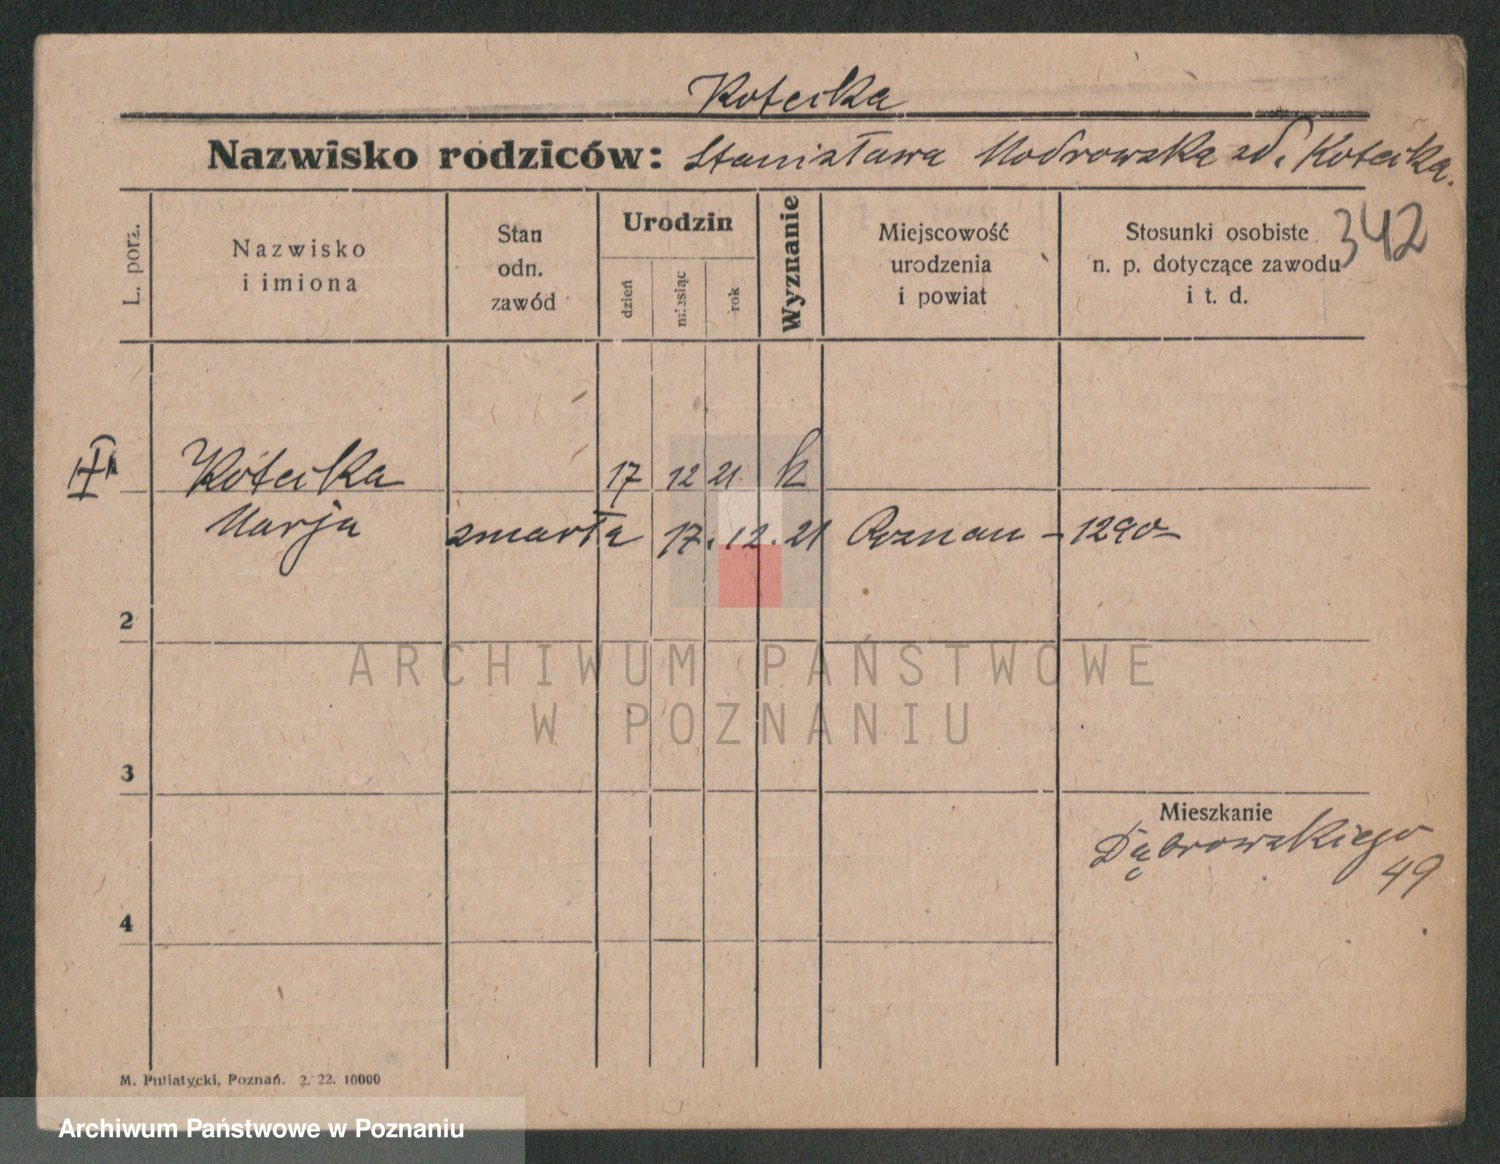 Kotecka
Nazwisko rodziców: Stanisława Modrowska zd. Kotecka.
342
L. porz.
Nazwisko
i imiona
Stan
odn.
zawód
Urodzin
dzień
miesiąc
rok
Wyznanie
Miejscowość
urodzenia
i powiat
Stosunki osobiste
n. p. dotyczące zawodu
i t. d.
Kotecka 17 12 21 k
Marja zmarła 17.12.21 Poznań - 1290-
2
3
4
Mieszkanie
Dąbrowskiego
49
ARCHIWUM PAŃSTWOWE
W POZNANIU
M. Putiatycki, Poznań. 2. 22. 10000
Archiwum Państwowe w Poznaniu